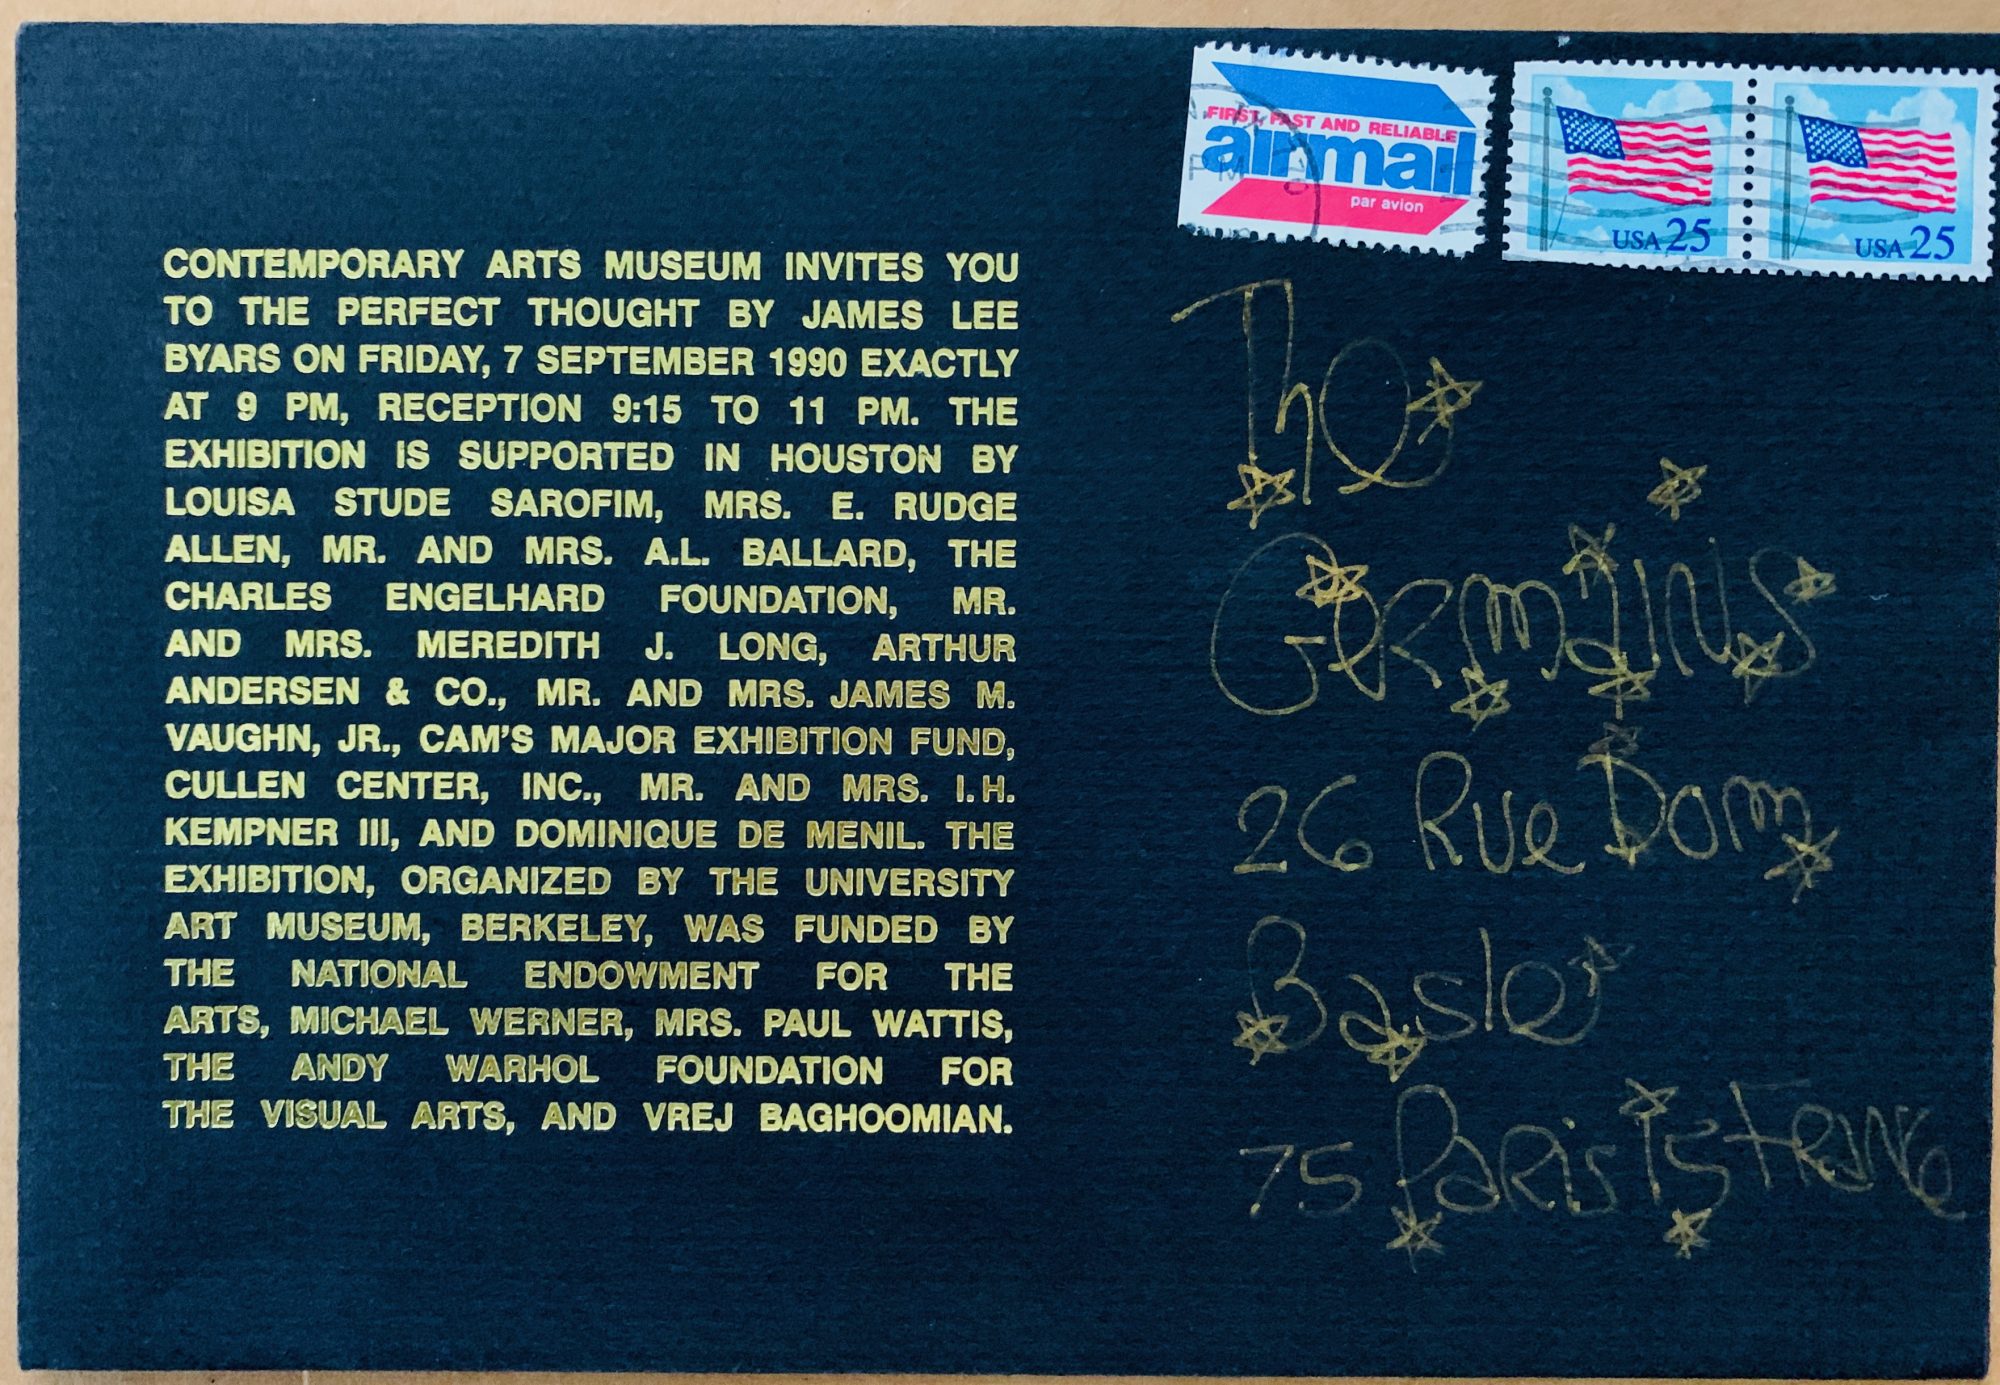 CONTEMPORARY ARTS MUSEUM INVITES YOU
TO THE PERFECT THOUGHT BY JAMES LEE
BYARS ON FRIDAY, 7 SEPTEMBER 1990 EXACTLY
AT 9 PM, RECEPTION 9:15 TO 11 PM. THE
EXHIBITION IS SUPPORTED IN HOUSTON BY
LOUISA STUDE SAROFIM, MRS. E. RUDGE
ALLEN, MR. AND MRS. A.L. BALLARD, THE
CHARLES ENGELHARD FOUNDATION, MR.
AND MRS. MEREDITH J. LONG, ARTHUR
ANDERSEN & CO., MR. AND MRS. JAMES M.
VAUGHN, JR., CAM'S MAJOR EXHIBITION FUND,
CULLEN CENTER, INC., MR. AND MRS. I.H.
KEMPNER III, AND DOMINIQUE DE MENIL. THE
EXHIBITION, ORGANIZED BY THE UNIVERSITY
ART MUSEUM, BERKELEY, WAS FUNDED BY
THE NATIONAL ENDOWMENT FOR THE
ARTS, MICHAEL WERNER, MRS. PAUL WATTIS,
THE ANDY WARHOL FOUNDATION FOR
THE VISUAL ARTS, AND VREJ BAGHOOMIAN.
FIRST, FAST AND RELIABLE
airmail
par avion
PM
USA 25
USA 25
The
Germains
26 Rue Dom
Basle
75 Paris 15 France